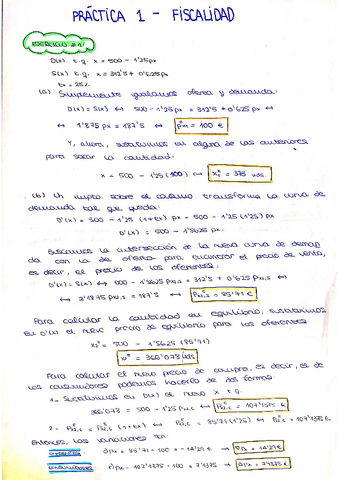 PRÁCTICA 1 - FISCALIDAD
EJERCICIO #1
D(x) t.q. x = 500 - 1'25px
S(x) t.q. x = 312'5 + 0'625px
tx = 25%
(a) Simplemente igualamos oferta y demanda:
D(x) = S(x) ↔ 500 - 1'25px = 312'5 + 0'625px ↔
↔ 1'875px = 187'5 ↔ = 100 €
Y, ahora, sustituimos en alguna de las anteriores
para sacar la cantidad:
x = 500 - 1'25(100) ↔ = 375 uds.
(b) Un impto sobre el consumo transforma la curva de
demanda tal que queda:
D'(x) = 500 - 1'25 (1+tx) px = 500 - 1'25 (1'25) px
D'(x) = 500 - 1'5625 px.
Buscamos la intersección de la nueva curva de deman
da con la de oferta para encontrar el precio de venta,
es decir, el precio de los oferentes:
D'(x) = S(x) ↔ 500 - 1'5625 = 312'5 + 0'625 ↔
↔ 2'1875 = 187'5 ↔ = 85'71 €
Para calcular la cantidad en equilibrio, sustituimos
en D'(x) el nuevo precio de equilibrio para los oferentes:
= 500 - 1'5625 (85'71)
= 366'078 uds
Para calcular el nuevo precio de compra, es decir, el de
los consumidores podemos hacerlo de dos formas
1.- Sustituimos en D(x) el nuevo x t.q.
366'078 = 500 - 1'25 ↔ = 107'1375 €
2.- = (1+tx) ↔ = 85'71 (1'25) ↔ = 107'1375 €
Entonces, las variaciones son:
oferentes = 85'71 - 100 = -14'29 € → = 14'29 €
consumidores = 107'1375 - 100 = 7'1375 → = 7'1375 €